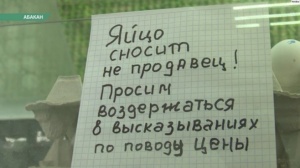 АБАКАН
Яйцо
сносит
не продавец!
Просим
воздержаться
в высказываниях
по поводу цены